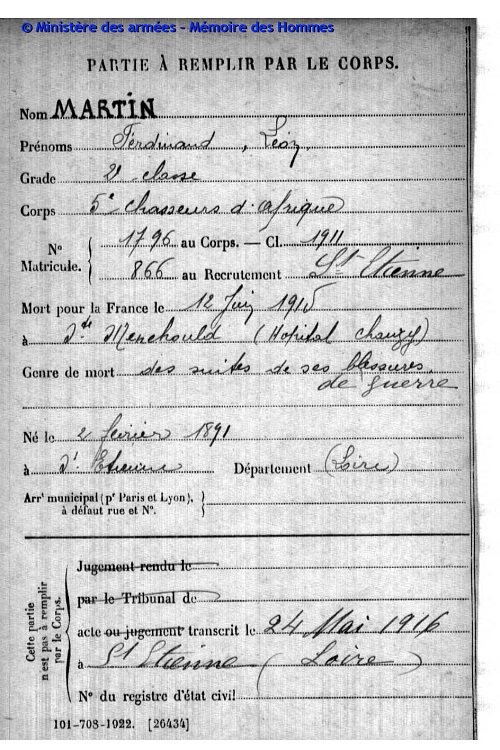 © Ministère des armées - Mémoire des Hommes
PARTIE À REMPLIR PAR LE CORPS.
Nom MARTIN
Prénoms Ferdinand, Léon
Grade 2e classe
Corps 5e chasseurs d'afrique
N° Matricule. { 1796 au Corps. — Cl. 1911
866 au Recrutement St Etienne
Mort pour la France le 12 Juin 1915
à Ste Menehould (Hopital chanzy)
Genre de mort des suites de ses blessures
de guerre
Né le 2 février 1891
à St Etienne Département (Loire)
Arrt municipal (pr Paris et Lyon), }
à défaut rue et N°.
Cette partie n'est pas à remplir par le Corps.
Jugement rendu le
par le Tribunal de
acte ou jugement transcrit le 24 Mai 1916
à St Etienne (Loire)
N° du registre d'état civil
101-708-1922. [26434]